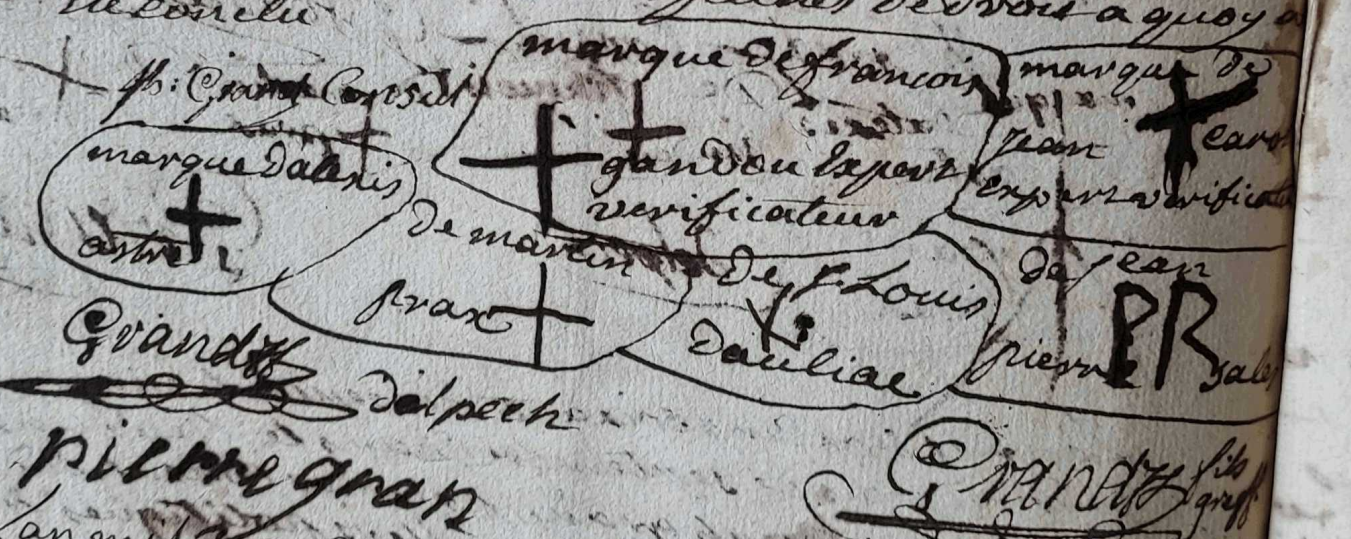 de droit a quoy
ph: Grand Consul
marque de françois
gandou Expert
verificateur
marque de
jean
expert verificateur
marque dalexis
astre
de martin
prax
de Louis
dauliac
de jean
pierre PR sales
Grand
delpech
pierre gran
Grand fils
greff